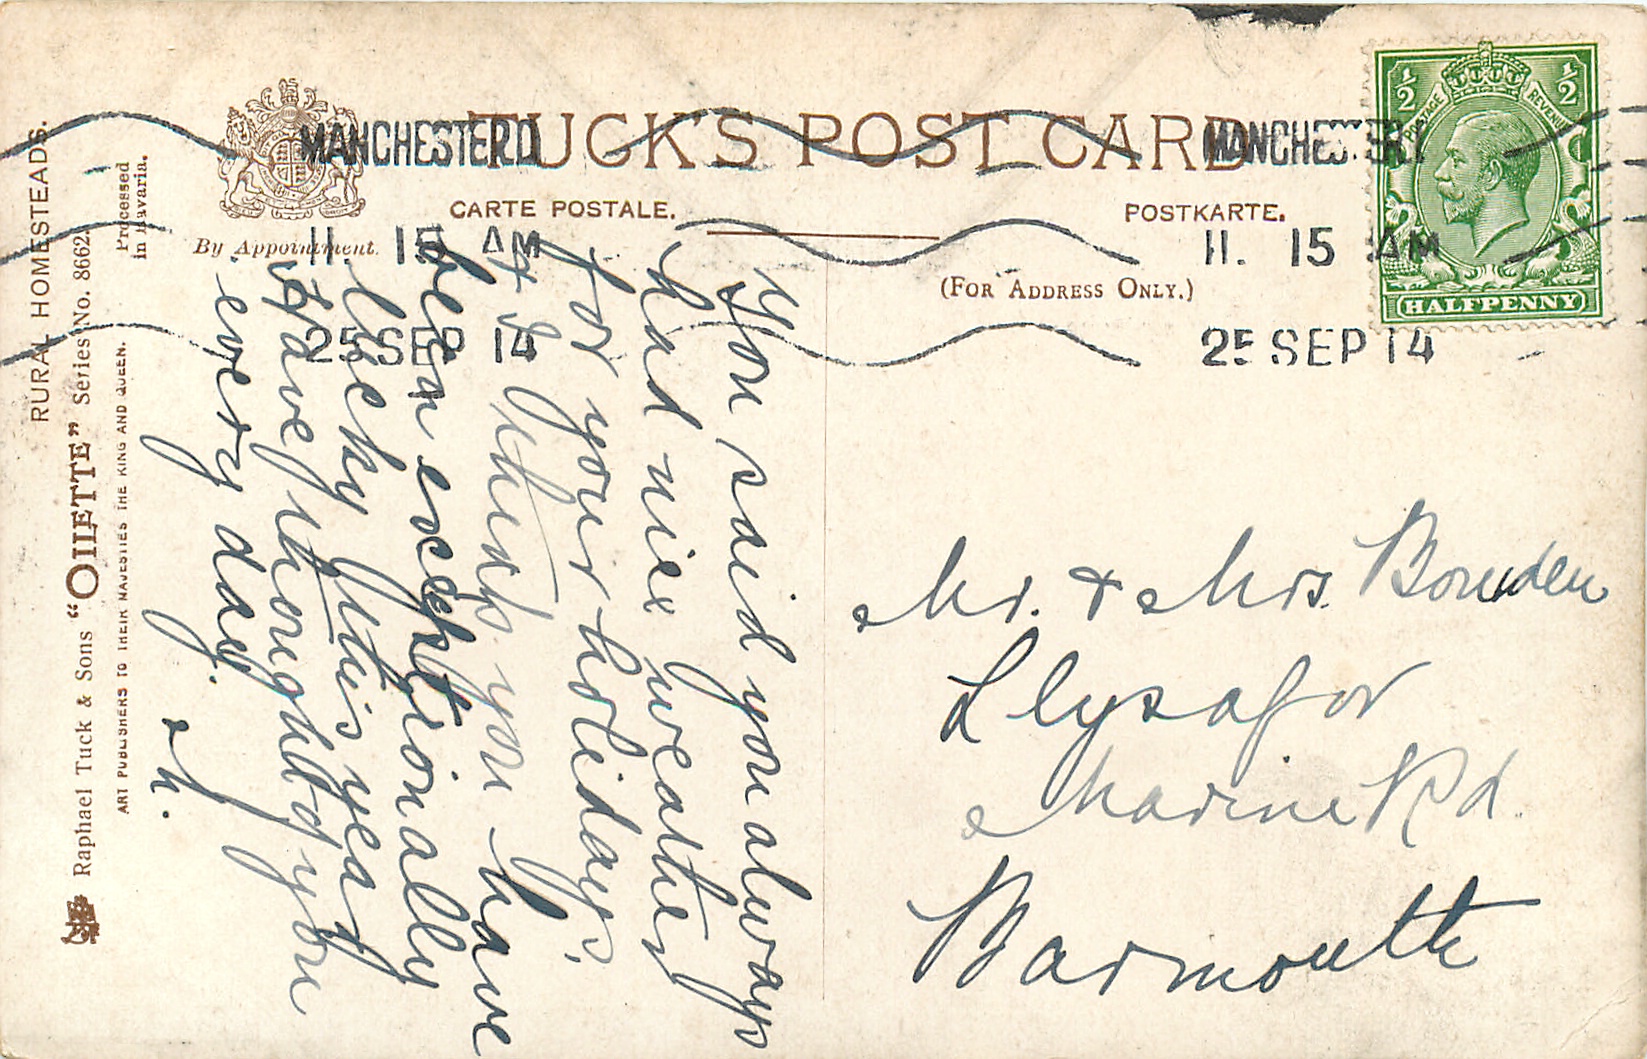 TUCK'S POST CARD
CARTE POSTALE.
POSTKARTE.
By Appointment.
(FOR ADDRESS ONLY.)
MANCHESTER
11. 15 AM
25 SEP 14
MANCHESTER
11. 15 AM
25 SEP 14
POSTAGE
REVENUE
½
½
HALFPENNY
RURAL HOMESTEADS.
Raphael Tuck & Sons "OILETTE" Series No. 8662
ART PUBLISHERS TO THEIR MAJESTIES THE KING AND QUEEN.
Processed
in Bavaria.
You said you always
had nice weather
for your holidays.
& I think you have
been exceptionally
lucky this year
Have thought of you
every day.
M.
Mr. & Mrs. Bowden
Llysafor
Marine Rd.
Barmouth